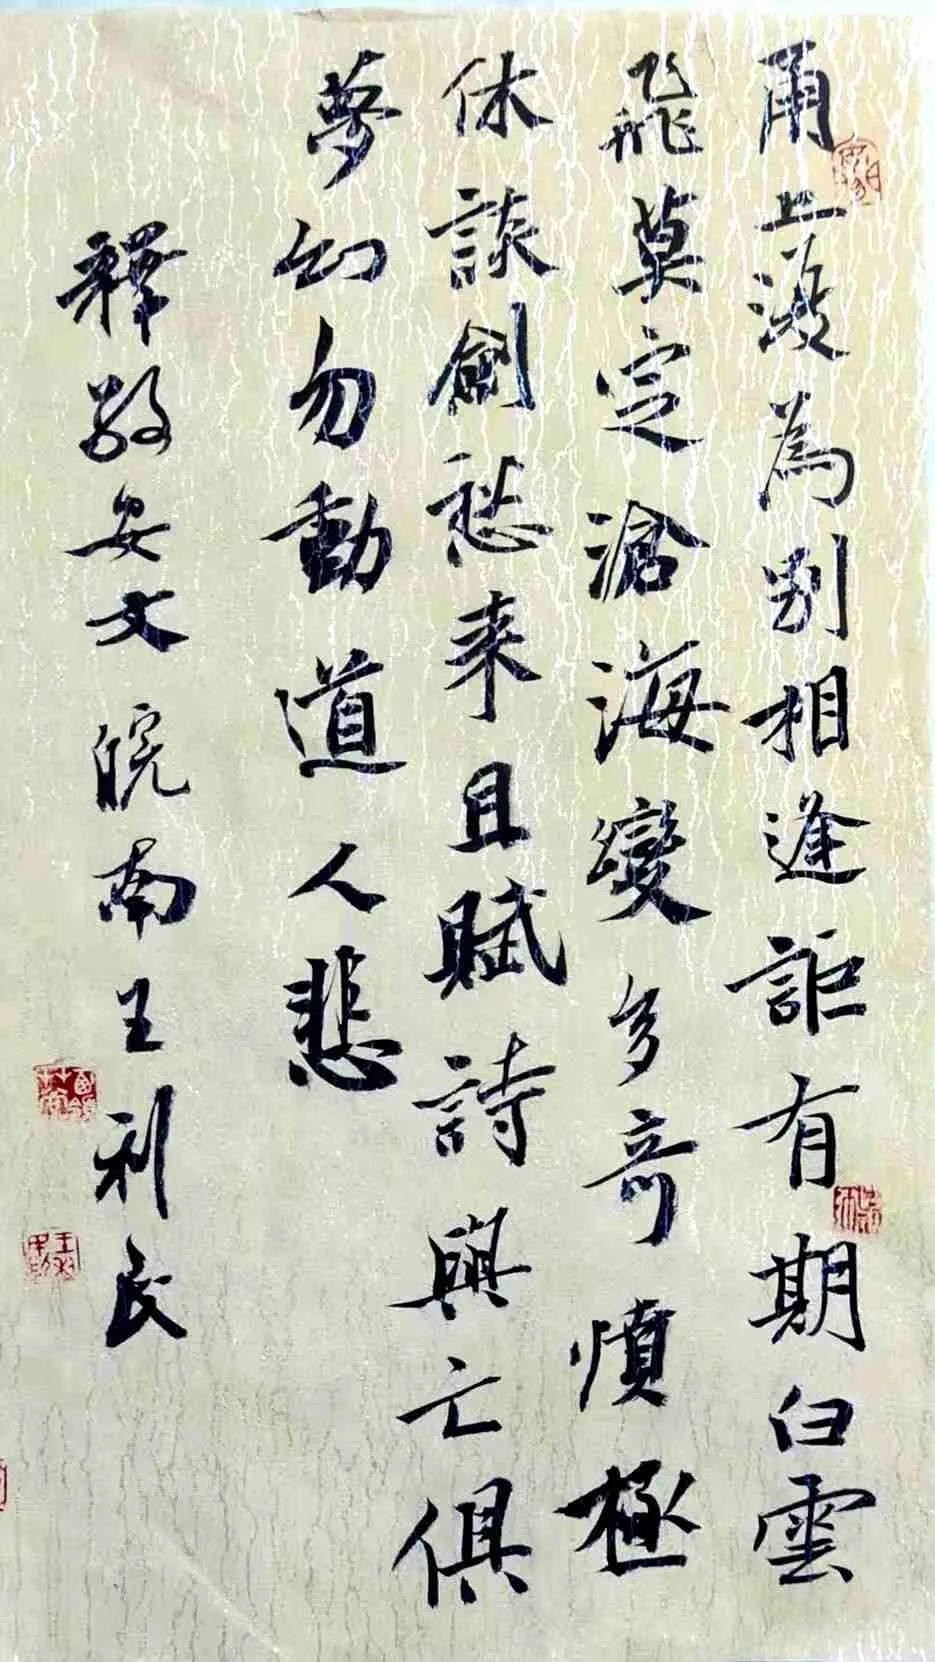 甬上復為別相逢詎有期白雲
飛莫定滄海變多奇憤極
休談劍愁来且賦詩與亡俱
夢幻勿動道人悲
釋敬安文 皖南王利民